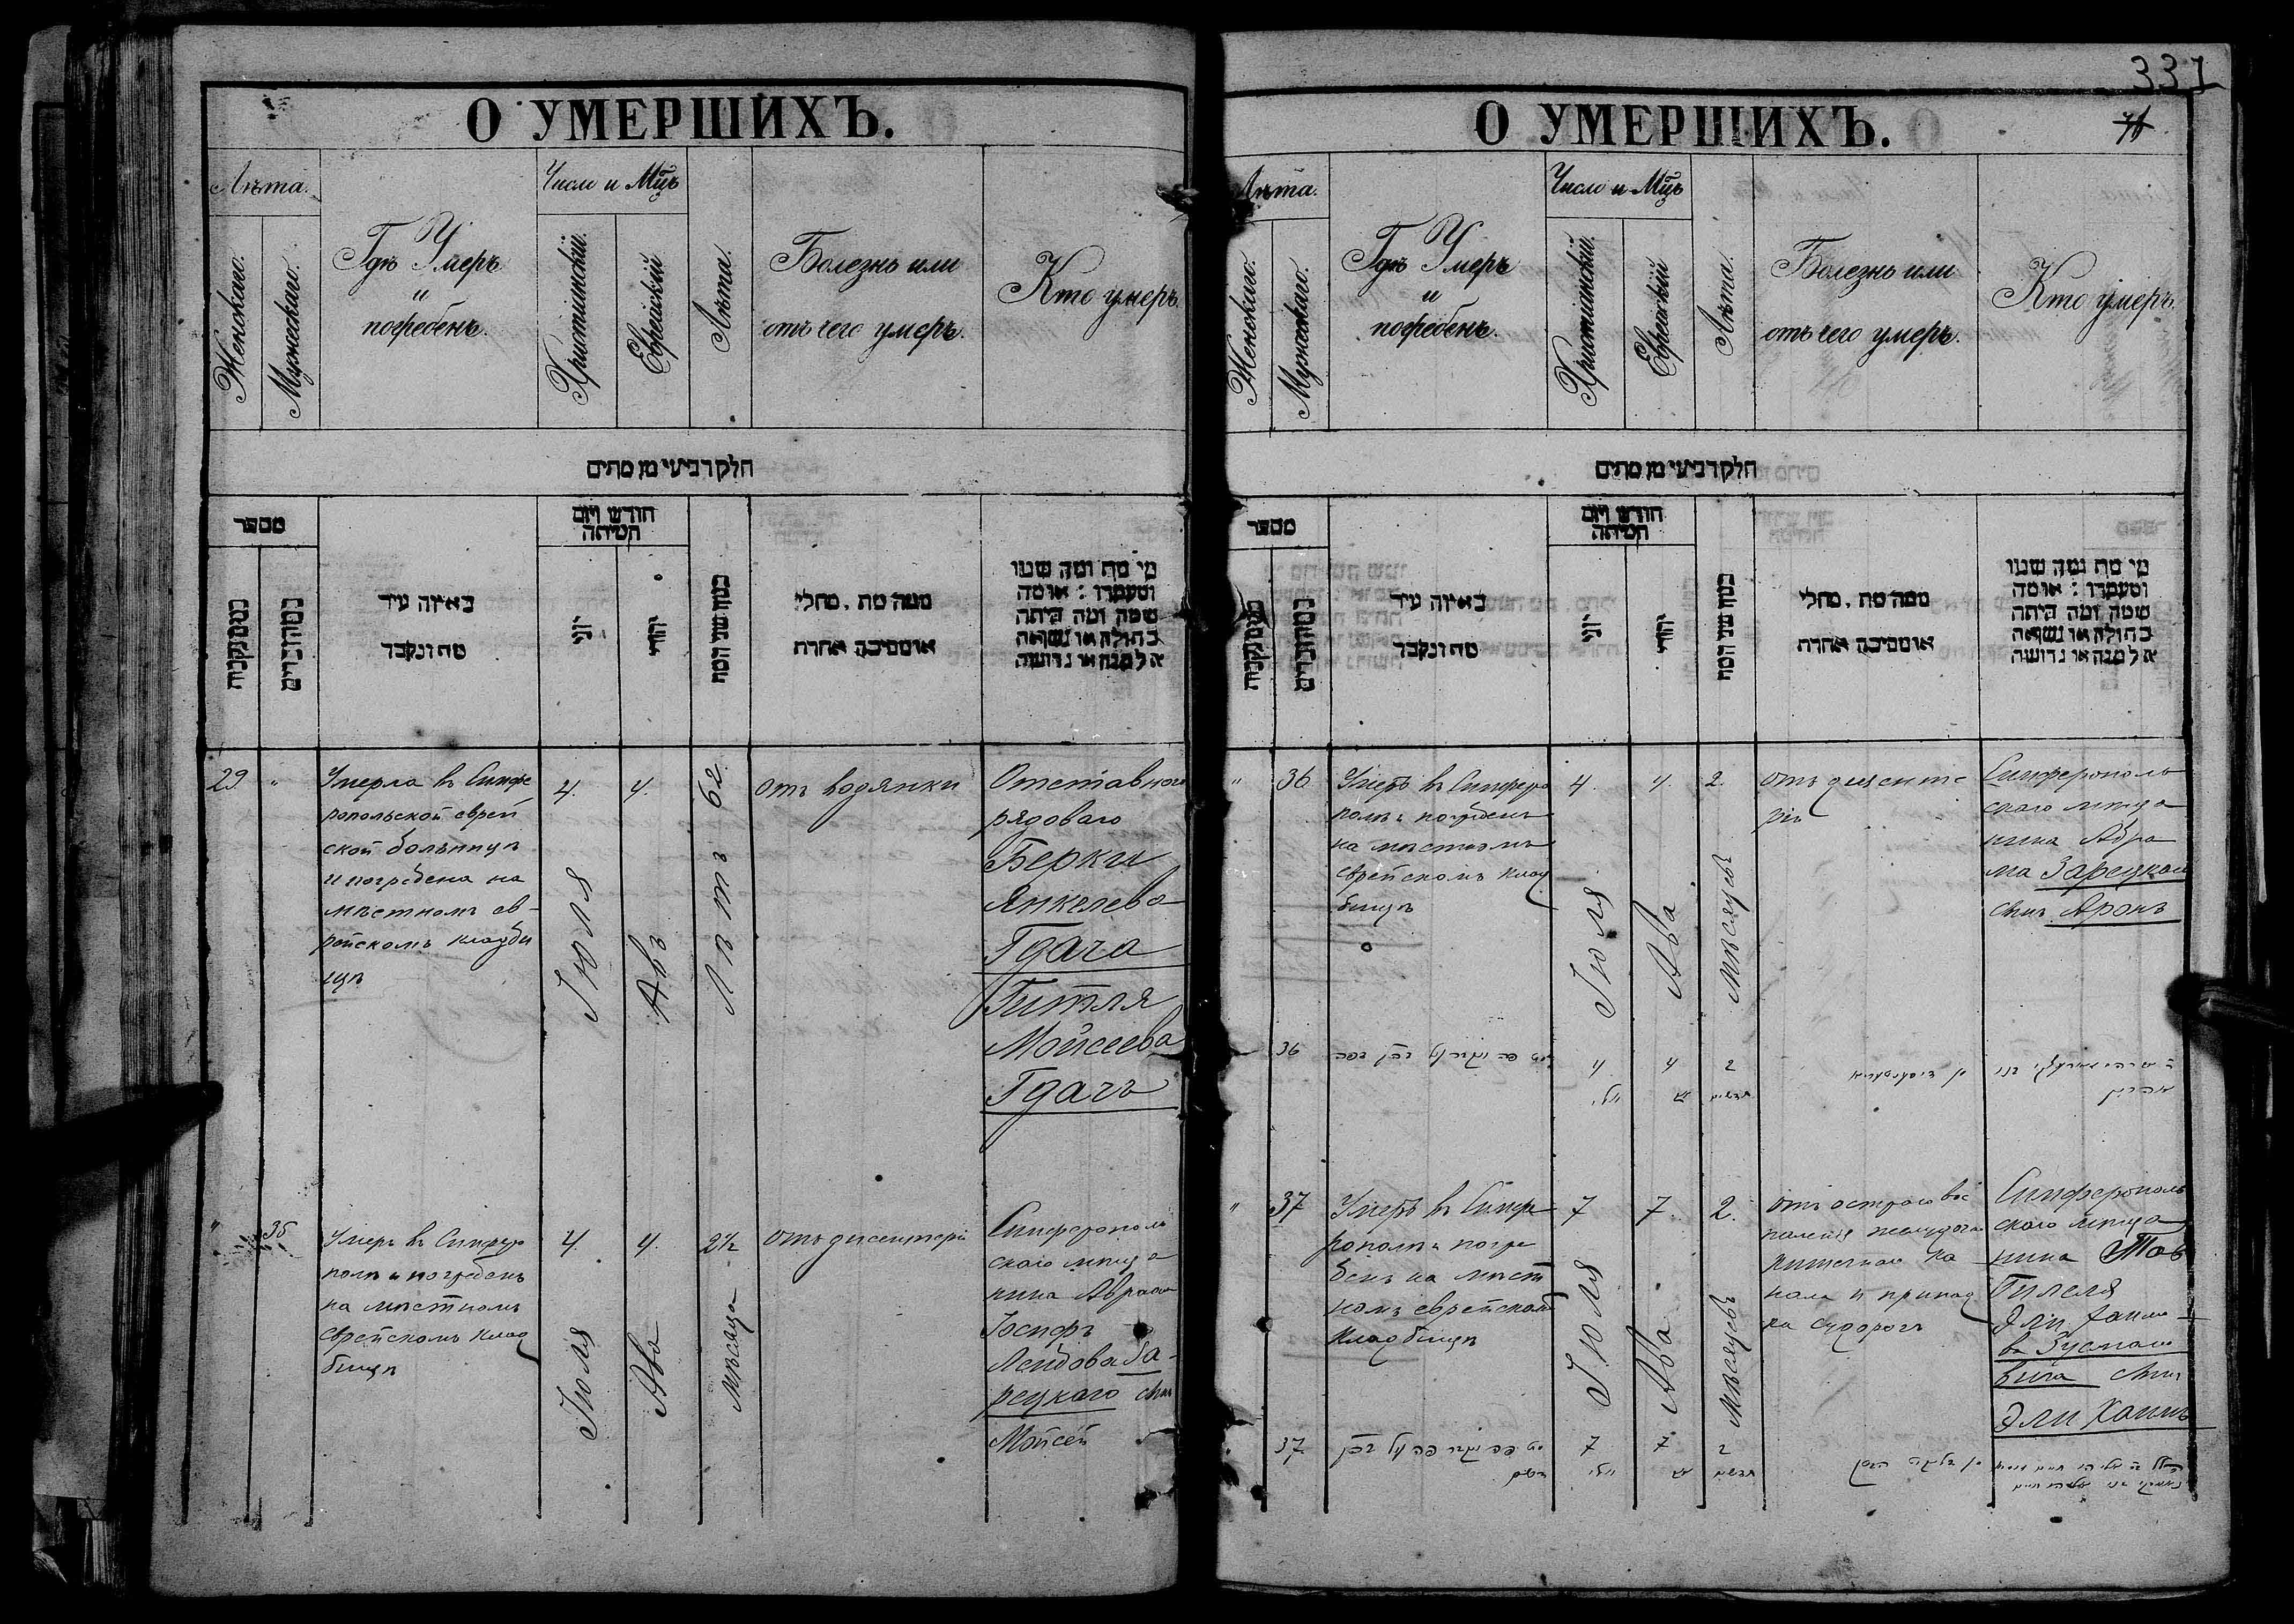 О УМЕРШИХЪ.
Лѣта.
Женскаго.
Мужескаго.
Гдѣ Умеръ
и
погребенъ.
Число и Мцъ
Христіанскій.
Еврейскій
Лѣта.
Болезнь или
отъ чего умеръ.
Кто умеръ.
חלק רביעי מן מתים
מספר
מהנקבות
מהזכרים
באיזה עיר
מת ונקבר
חודש ויום
המיתה
יוני
יהודי
כמה שני המת
ממה מת, מחלי
או מסיבה אחרת
מי מת ומה שמו
ומעמדו; או מה
שמה ומה היתה
בתולה או נשואה
אלמנה או גרושה
29. "
Умерла въ Симфе
ропольской еврей
ской больницѣ
и погребена на
мѣстномъ ев-
рейскомъ кладби
щѣ
4.
Іюля
4.
Авъ
62.
Лѣтъ
отъ водянки
Отставного
рядоваго
Берки
Янкелева
Гдача
Гитля
Мойсеева
Гдачъ
" 35
Умеръ въ Симферо
полѣ и погребенъ
на мѣстномъ
еврейскомъ клад
бищѣ
4.
Іюля
4.
Ава
2½
мѣсяца
отъ дисентеріи
Симферополь
скаго мѣща
нина
Іосифъ
Лейбова За-
рецкаго сынъ
Мойсей
331
О УМЕРШИХЪ.
Лѣта.
Женскаго.
Мужескаго.
Гдѣ Умеръ
и
погребенъ.
Число и Мцъ
Христіанскій.
Еврейскій
Лѣта.
Болезнь или
отъ чего умеръ.
Кто умеръ.
חלק רביעי מן מתים
מספר
מהנקבות
מהזכרים
באיזה עיר
מת ונקבר
חודש ויום
המיתה
יוני
יהודי
כמה שני המת
ממה מת, מחלי
או מסיבה אחרת
מי מת ומה שמו
ומעמדו; או מה
שמה ומה היתה
בתולה או נשואה
אלמנה או גרושה
" 36
Умеръ въ Симферо
полѣ и погребенъ
на мѣстномъ
еврейскомъ клад
бищѣ
4.
Іюля
4.
Ава
2.
мѣсяцевъ
отъ дисенте
ріи
Симферополь
скаго мѣща
нина Абра
ма Зарецкаго
сынъ Аронъ
36
4
יולי
4
אב
2
חדשים
אהרון
" 37
Умеръ въ Симфе
рополѣ и погре
бенъ на мѣст
номъ еврейскомъ
кладбищѣ
7
Іюля
7.
Ава
2.
мѣсяцевъ
отъ остраго вос
паленія желудочно
кишечнаго ка
нала и припад
ка судорогъ
Симферополь
скаго мѣща
нина
Гилеля
Эли Хаимо
ва
вича сынъ
Эли Хаимъ
37
7
יולי
7
אב
2
חדשים